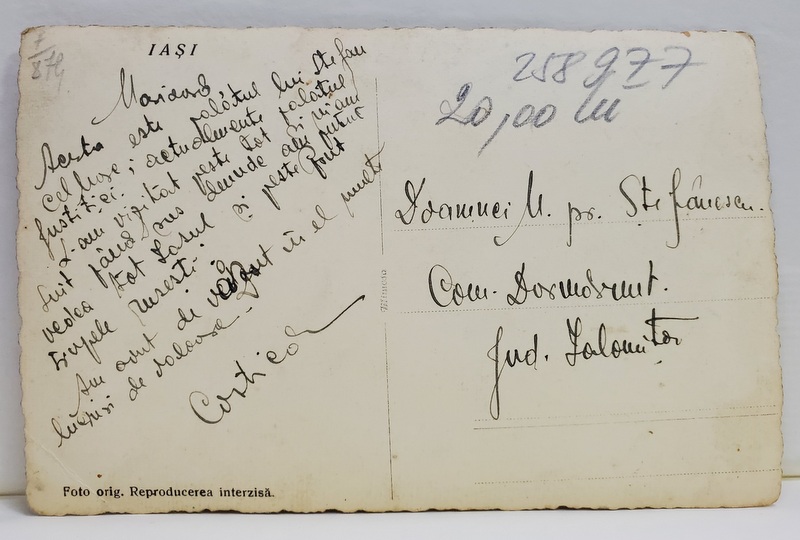 7/879
IAȘI
Marioară
Acesta este palatul lui Ștefan
cel Mare; actualmente palatul
Justiției.
L-am vizitat peste tot și m'am
suit până sus de unde am putut
vedea tot Iașul și peste Prut
trupele rusești.
Am avut de văzut în el multe
lucruri de valoare.
Costică
Foto orig. Reproducerea interzisă.
Mimosa
258977
20,00 lei
Doamnei M. pr. Ștefănescu.
Com. Dormărunt.
Jud. Ialomița